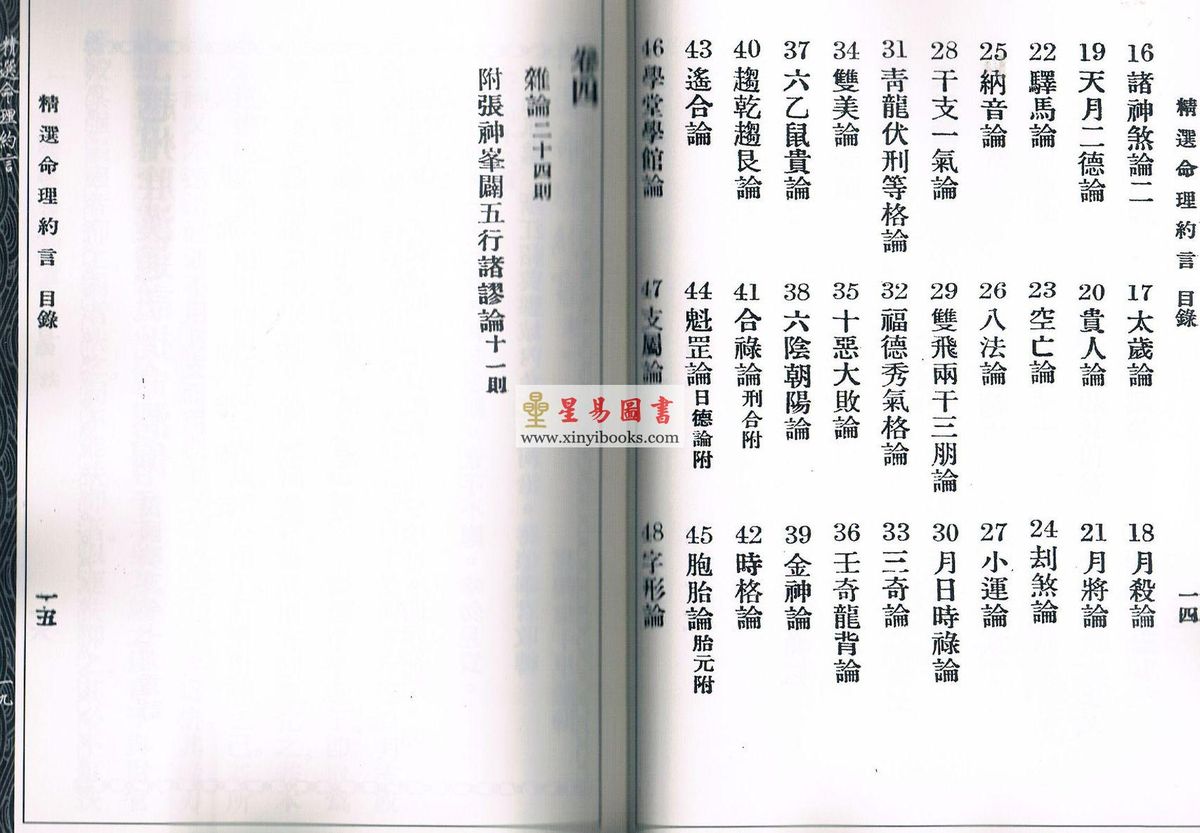 精選命理約言 目錄
一四
16 諸神煞論二
17 太歲論
18 月殺論
19 天月二德論
20 貴人論
21 月將論
22 驛馬論
23 空亡論
24 刦煞論
25 納音論
26 八法論
27 小運論
28 干支一氣論
29 雙飛兩干三朋論
30 月日時祿論
31 青龍伏刑等格論
32 福德秀氣格論
33 三奇論
34 雙美論
35 十惡大敗論
36 壬奇龍背論
37 六乙鼠貴論
38 六陰朝陽論
39 金神論
40 趨乾趨艮論
41 合祿論刑合附
42 時格論
43 遙合論
44 魁罡論日德論附
45 胞胎論胎元附
46 學堂學館論
47 支屬論
48 字形論
卷四
雜論二十四則
附張神峯闢五行諸謬論十一則
精選命理約言 目錄
一五
精選命理約言
一九
星易圖書
www.xinyibooks.com